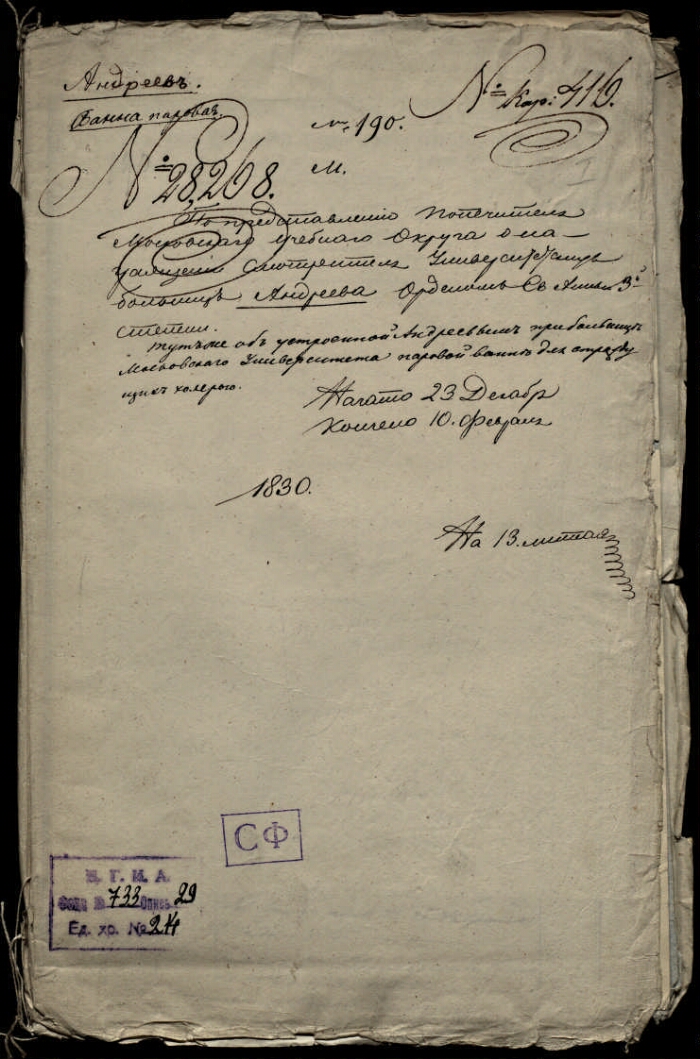 Андреевъ.
Ванна паровая.
№ Кар: 416.
№ 190.
№ 28,268.
М.
По представленію Попечителя
Московскаго учебнаго Округа о на-
гражденіи Смотрителя Университетскихъ
больницъ Андреева Орденомъ Св. Анны 3й
степени.
Тутъже объ устроенной Андреевымъ при больницѣ
Московскаго Университета паровой ваннѣ для стражду
щихъ холерою.
Начато 23 Декабр
Кончено 10. Февраля
1830.
На 13. листахъ
СФ
Ц. Г. И. А.
Фонд № 733 Опись 29
Ед. хр. № 24